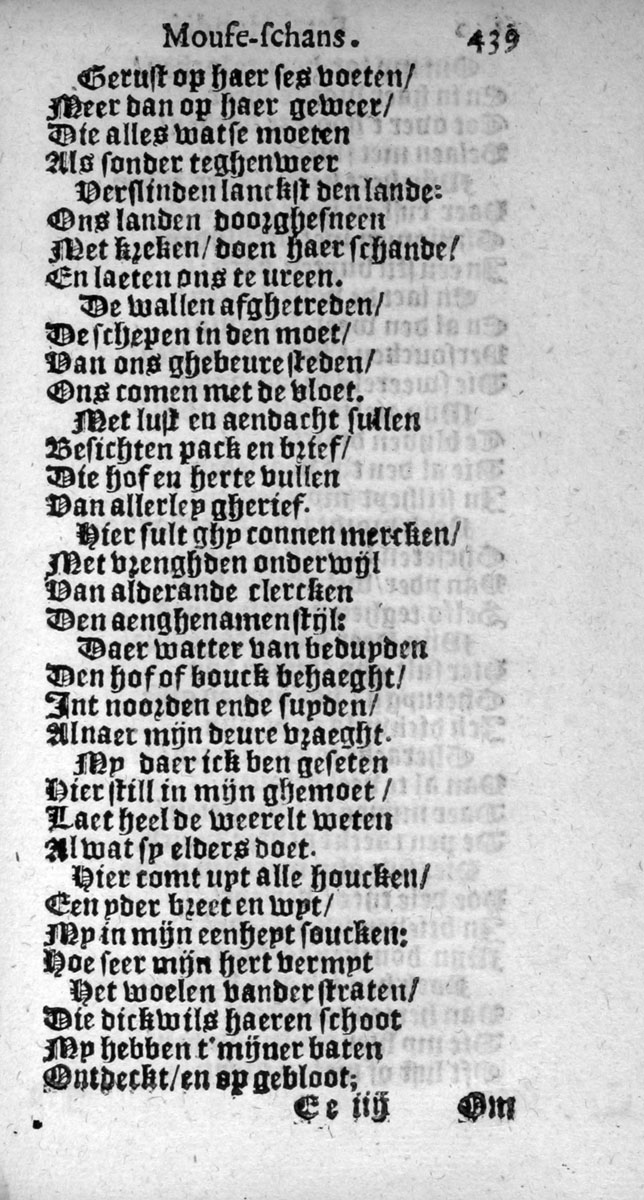 Mouse-schans. 439
Gerust op haer ses voeten/
Meer dan op haer geweer/
Die alles watse moeten
Als sonder teghenweer
Verslinden lanckst den lande:
Ons landen doorghesneen
Met kreken/ doen haer schande/
En laeten ons te vreen.
De wallen afghetreden/
De schepen in den moet/
Van ons ghebeure steden/
Ons comen met de vloet.
Met lust en aendacht sullen
Besichten pack en brief/
Die hof en herte vullen
Van allerley gherief.
Hier sult ghy connen mercken/
Met vrenghden onderwijl
Van alderande clercken
Den aenghenamen stijl:
Daer watter van beduyden
Den hof of bouck behaeght/
Int noorden ende suyden/
Alnaer mijn deure vraeght.
My daer ick ben geseten
Hier still in mijn ghemoet /
Laet heel de weerelt weten
Al wat sy elders doet.
Hier comt uyt alle houcken/
Een yder breet en wyt/
My in mijn eenheyt soucken:
Hoe seer mijn hert vermyt
Het woelen vander straten/
Die dickwils haeren schoot
My hebben t'mijner baten
Ontdeckt/ en op gebloot;
Ee iij Om